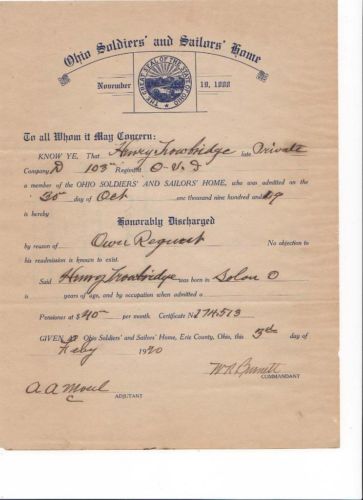 Ohio Soldiers' and Sailors' Home
November 19, 1888
THE GREAT SEAL OF THE STATE OF OHIO
To all Whom it May Concern:
KNOW YE, That Henry Trowbridge late Private
Company D 103" Regiment O-V-I
a member of the OHIO SOLDIERS' AND SAILORS' HOME, who was admitted on the
30 day of Oct one thousand nine hundred and 19
is hereby
Honorably Discharged
by reason of Own Request No objection to
his readmission is known to exist.
Said Henry Trowbridge was born in Solon O
is years of age, and by occupation when admitted a
Pensioner at $40- per month. Certificate No 174513
GIVEN at Ohio Soldiers' and Sailors' Home, Erie County, Ohio, this 5th day of
Feby 1920
W R Burnett
COMMANDANT
A A Moul
ADJUTANT